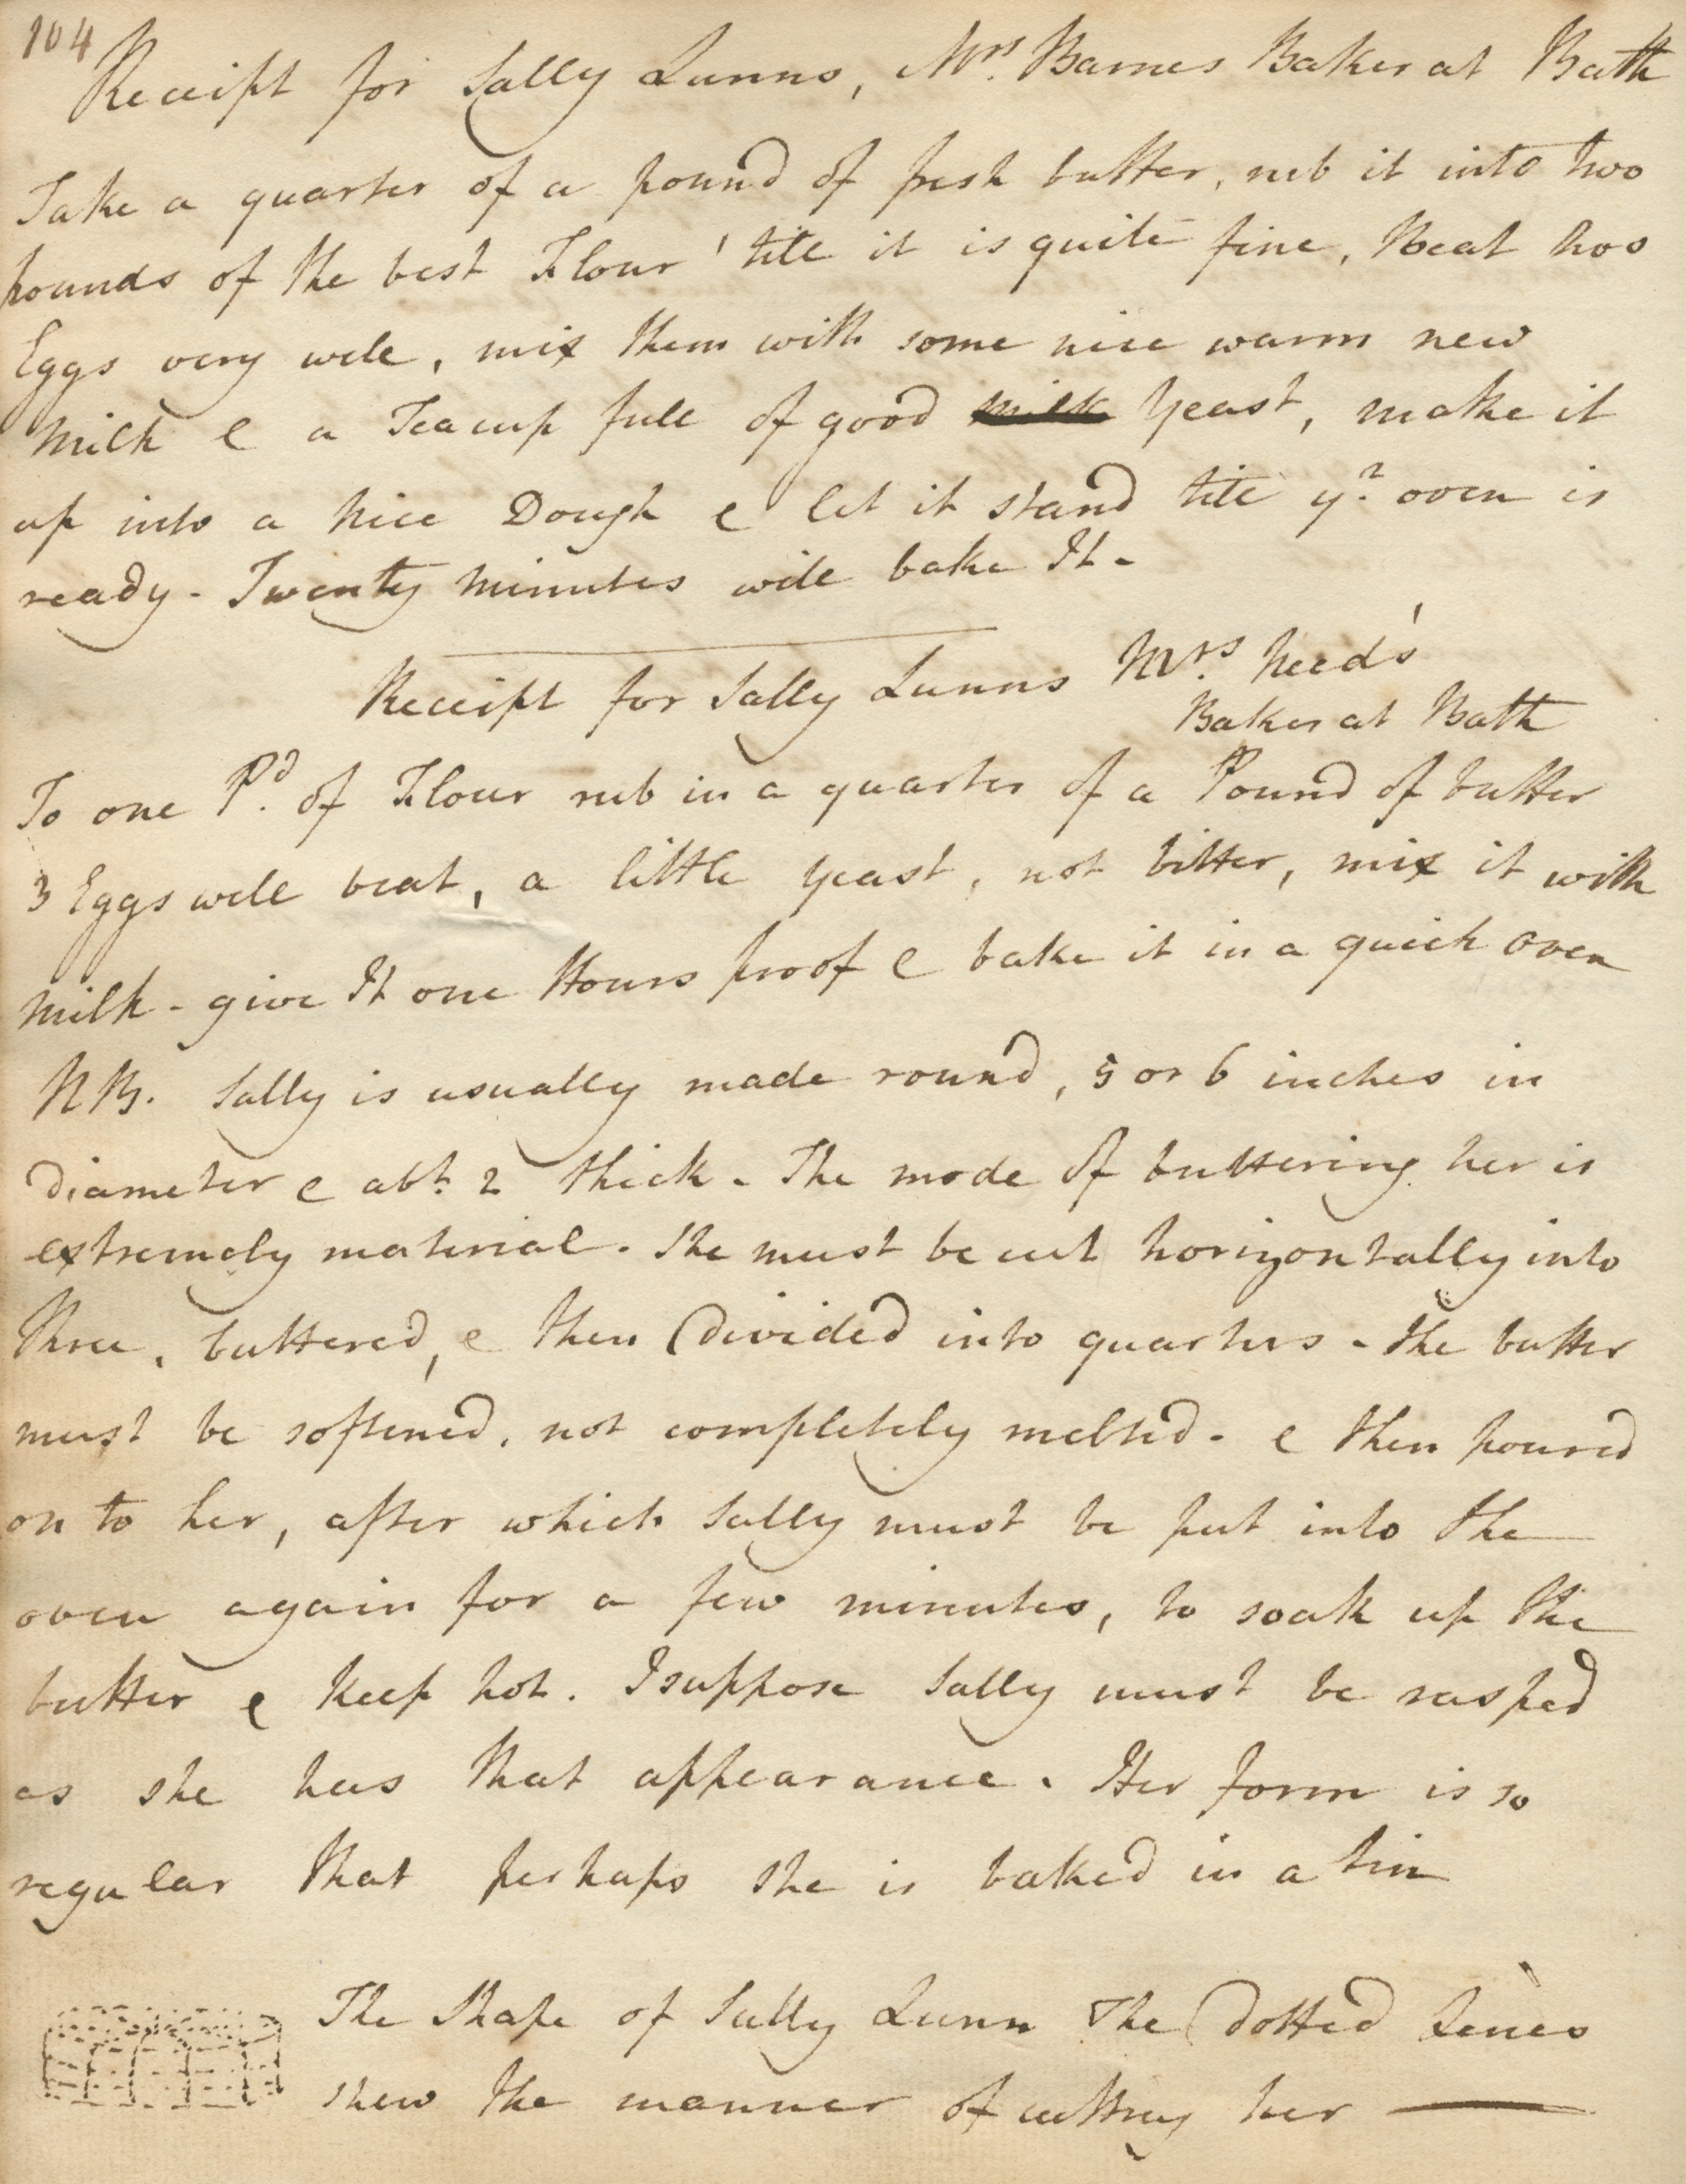 104
Receipt for Sally Lunns, Mrs. Barnes Baker at Bath
Take a quarter of a pound of fresh butter, rub it into two
pounds of the best Flour 'till it is quite fine, Beat two
Eggs very well, mix them with some nice warm new
Milk & a Teacup full of good milk Yeast, make it
up into a nice Dough & let it stand till ye. oven is
ready - Twenty Minutes will bake It -
Receipt for Sally Lunns Mrs. Need's
Baker at Bath
To one Pd. of Flour rub in a quarter of a Pound of butter
3 Eggs well beat, a little yeast, not bitter, mix it with
Milk - give It one Hours proof & bake it in a quick Oven
NB. Sally is usually made round, 5 or 6 inches in
Diameter & abt. 2 thick - The mode of buttering her is
extremely material. She must be cut horizontally into
three, buttered, & then Divided into quarters - the butter
must be softened, not completely melted - & then poured
on to her, after which Sally must be put into the
oven again for a few minutes, to soak up the
butter & keep hot. I suppose Sally must be rasped
as she has that appearance. Her form is so
regular that perhaps she is baked in a tin
The Shape of Sally Lunn The Dotted Lines
shew the manner of cutting her